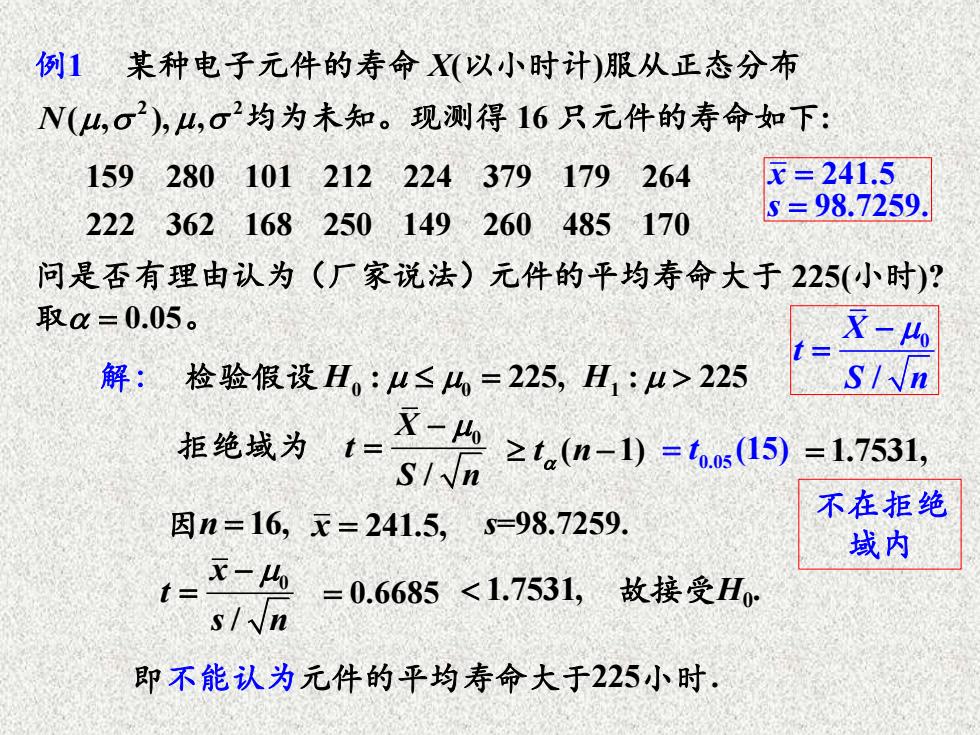 例1 某种电子元件的寿命 X(以小时计)服从正态分布
N(μ,σ²), μ,σ²均为未知。现测得 16 只元件的寿命如下:
159 280 101 212 224 379 179 264
222 362 168 250 149 260 485 170
x̄ = 241.5
s = 98.7259.
问是否有理由认为（厂家说法）元件的平均寿命大于 225(小时)?
取α = 0.05。
t = (X̄ − μ₀) / (S / √n)
解: 检验假设 H₀ : μ ≤ μ₀ = 225, H₁ : μ > 225
拒绝域为 t = (X̄ − μ₀) / (S / √n) ≥ t_α(n − 1) = t₀.₀₅(15) = 1.7531,
因n = 16, x̄ = 241.5, s=98.7259.
不在拒绝
域内
t = (x̄ − μ₀) / (s / √n) = 0.6685 < 1.7531, 故接受H₀.
即不能认为元件的平均寿命大于225小时.